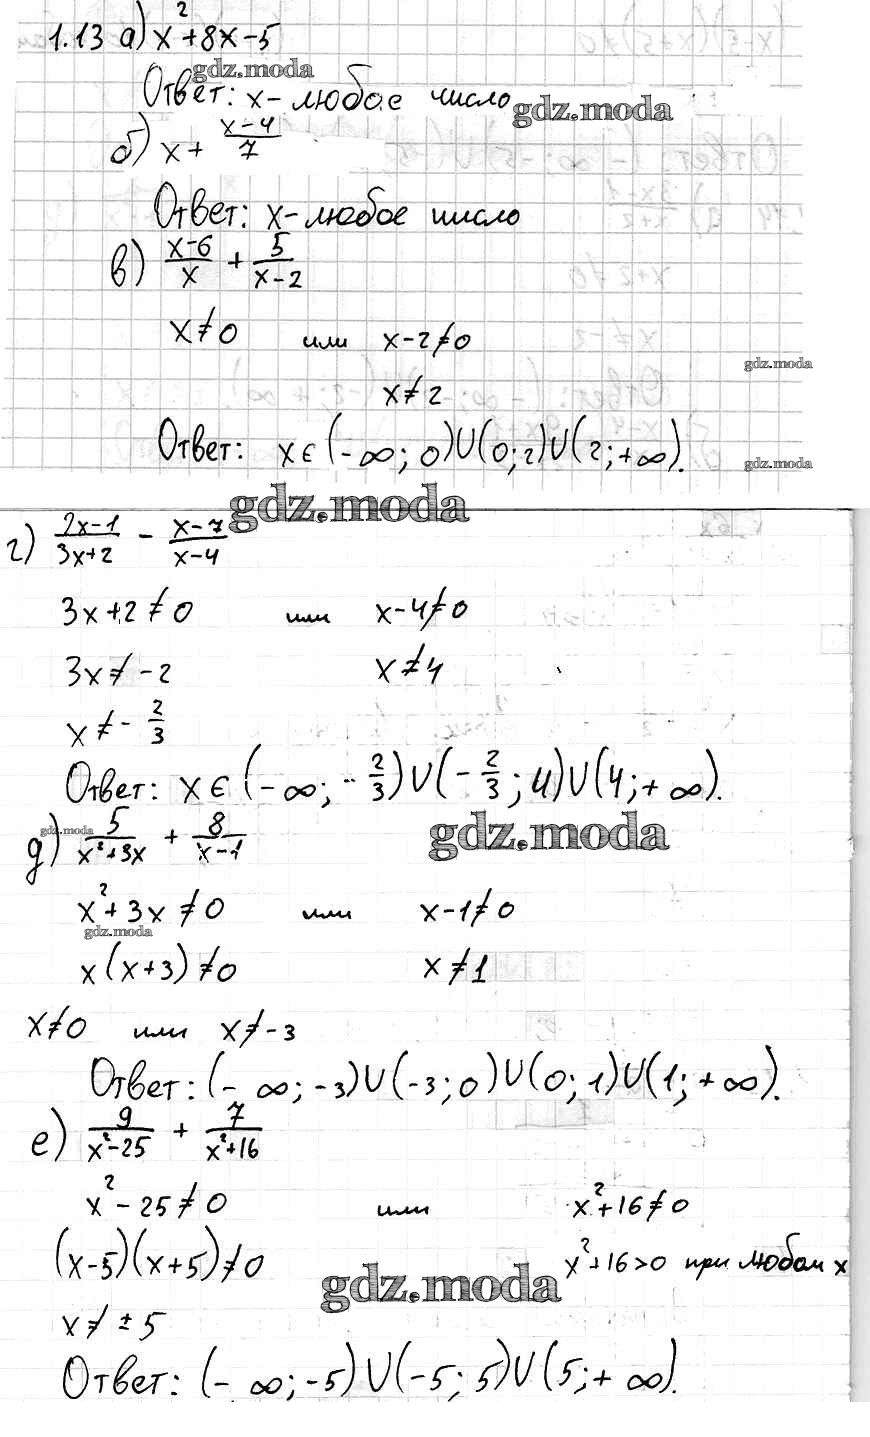 1.13 а) x²+8x-5
gdz.moda
Ответ: x-любое число
gdz.moda
б) x+ (x-4)/7
Ответ: x-любое число
в) (x-6)/x + 5/(x-2)
x≠0 или x-2≠0
gdz.moda
x≠2
Ответ: x∈(-∞; 0)∪(0;2)∪(2;+∞).
gdz.moda
gdz.moda
г) (2x-1)/(3x+2) - (x-7)/(x-4)
3x+2≠0 или x-4≠0
3x≠-2 x≠4
x≠-2/3
Ответ: x∈(-∞; -2/3)∪(-2/3; 4)∪(4;+∞).
gdz.moda
д) 5/(x²+3x) + 8/(x-1)
gdz.moda
x²+3x≠0 или x-1≠0
gdz.moda
x(x+3)≠0 x≠1
x≠0 или x≠-3
Ответ: (-∞; -3)∪(-3; 0)∪(0; 1)∪(1; +∞).
е) 9/(x²-25) + 7/(x²+16)
x²-25≠0 или x²+16≠0
(x-5)(x+5)≠0 x²+16>0 при любом x
gdz.moda
x≠±5
Ответ: (-∞; -5)∪(-5; 5)∪(5;+∞).